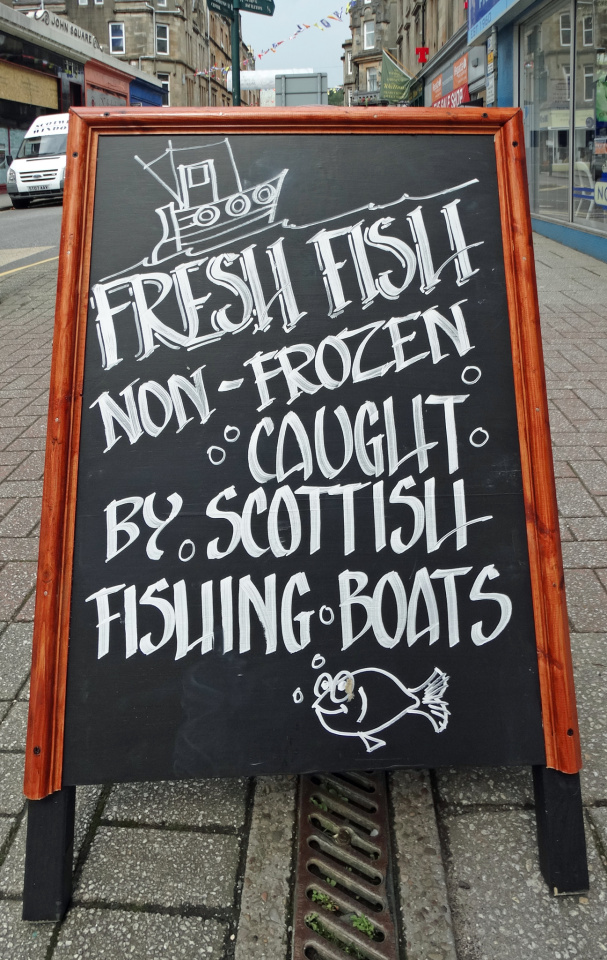 JOHN SQUARE
SALE SHOP
FRESH FISH
NON-FROZEN
CAUGHT
BY SCOTTISH
FISHING BOATS